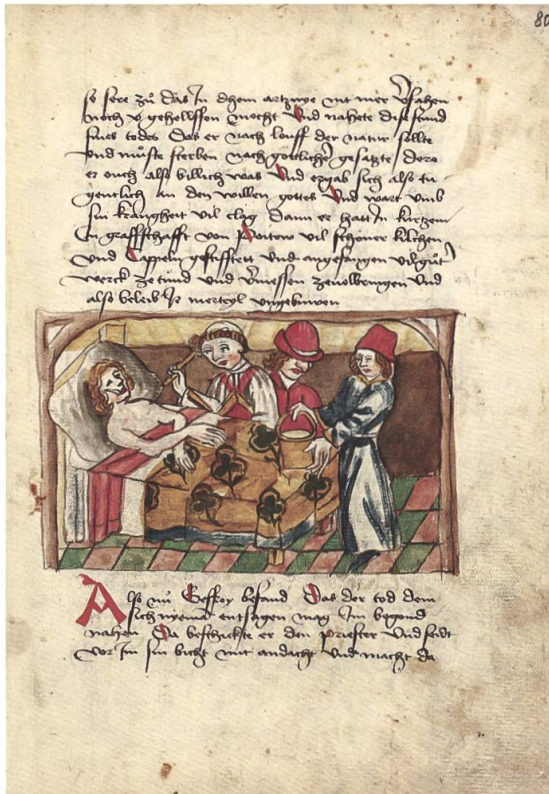 80
so sere zů das Jn dhein artznye nit mer
noch gehelffen mocht Vnd nahete die stund
sines todes Das er nach louff der natur sollte
vnd můste sterben nach gesatzte dero
er ouch also billich was Vnd ergab sich also
an den willen gottes Vnd wart vmb
sin kranngheit vil clag Dann er hatt in kurtzem
Jn graffschafft von Poitow vil schoner kilchen
vnd Cappeln gestifftett vnd angefangen vil gůt
werck ze tůnd vnd zenolbringen vnd
also beleib Jr merteyl vngebuwen
Also nů Geffroy befand Das der tod dem
sich nyeman entsagen mag Jm begond
nahen Da beschickte er den priester vnd
vor Jm sin bicht mit andacht vnd macht da